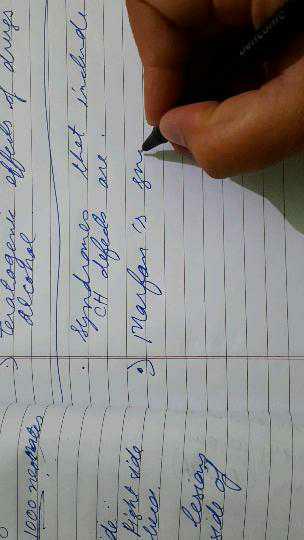 i) teratogenic effects of drugs
alcohol
. Syndromes that include
CH defects are
i) Marfan's syn
1000 neonates
de :
Right side
lesions
side of